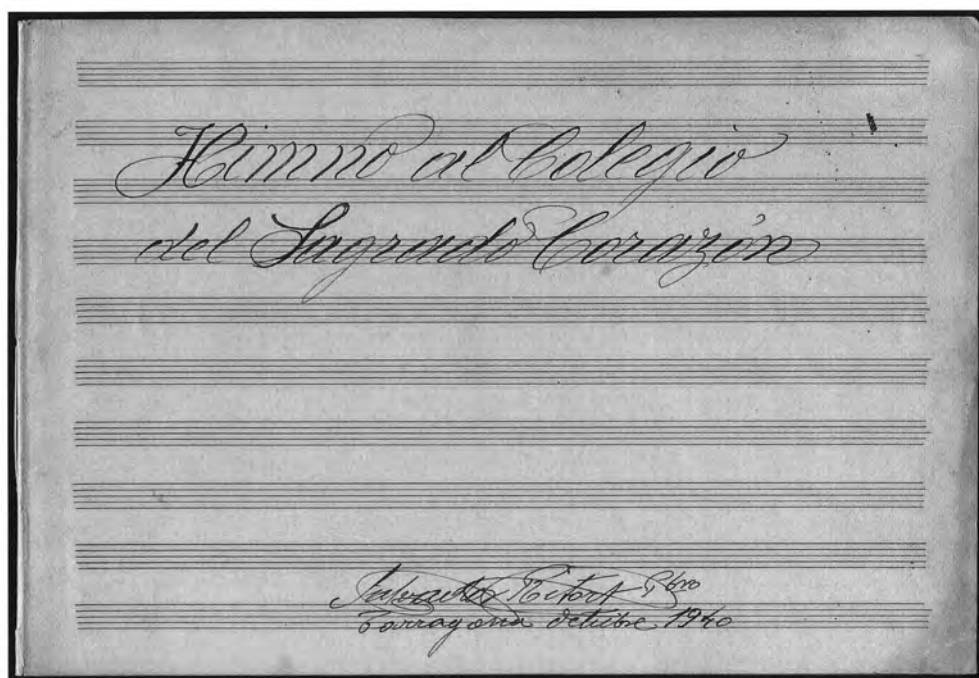 Himno al Colegio
del Sagrado Corazón
Salvador Ritort Pbro
Tarragona octubre 1940